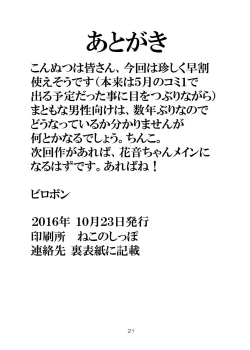 あとがき
こんぬつは皆さん、今回は珍しく早割
使えそうです（本来は5月のコミ1で
出る予定だった事に目をつぶりながら）
まともな男性向けは、数年ぶりなので
どうなっているか分かりませんが
何とかなるでしょう。ちんこ。
次回作があれば、花音ちゃんメインに
なるはずです。あればね！
ピロポン
2016年 10月23日発行
印刷所　ねこのしっぽ
連絡先 裏表紙に記載
21